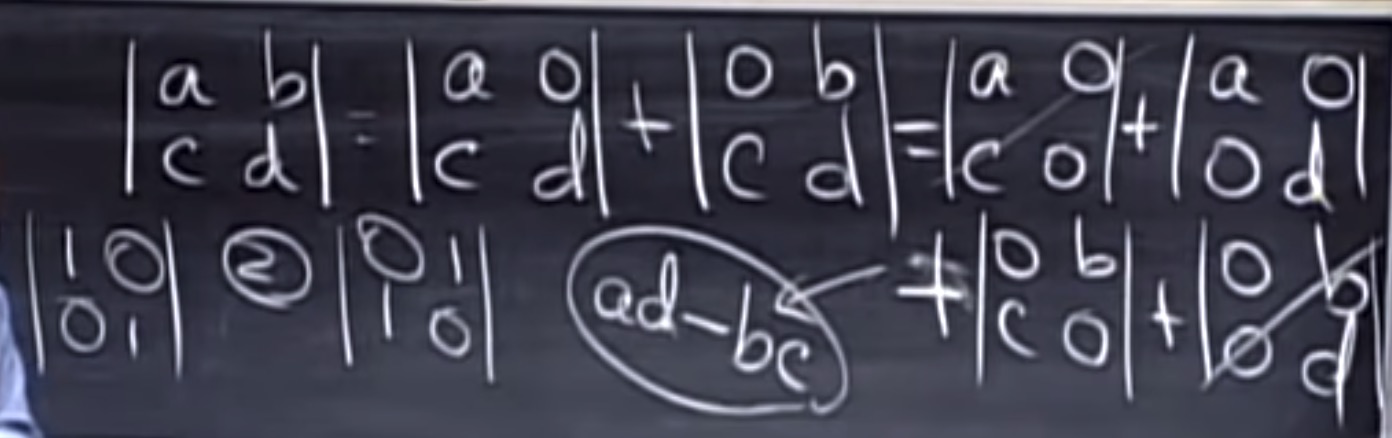 |a b; c d| = |a 0; c d| + |0 b; c d| = |a 0; c 0| + |a 0; 0 d|
|1 0; 0 1| ② |0 1; 1 0| ad-bc ← + |0 b; c 0| + |0 b; 0 d|